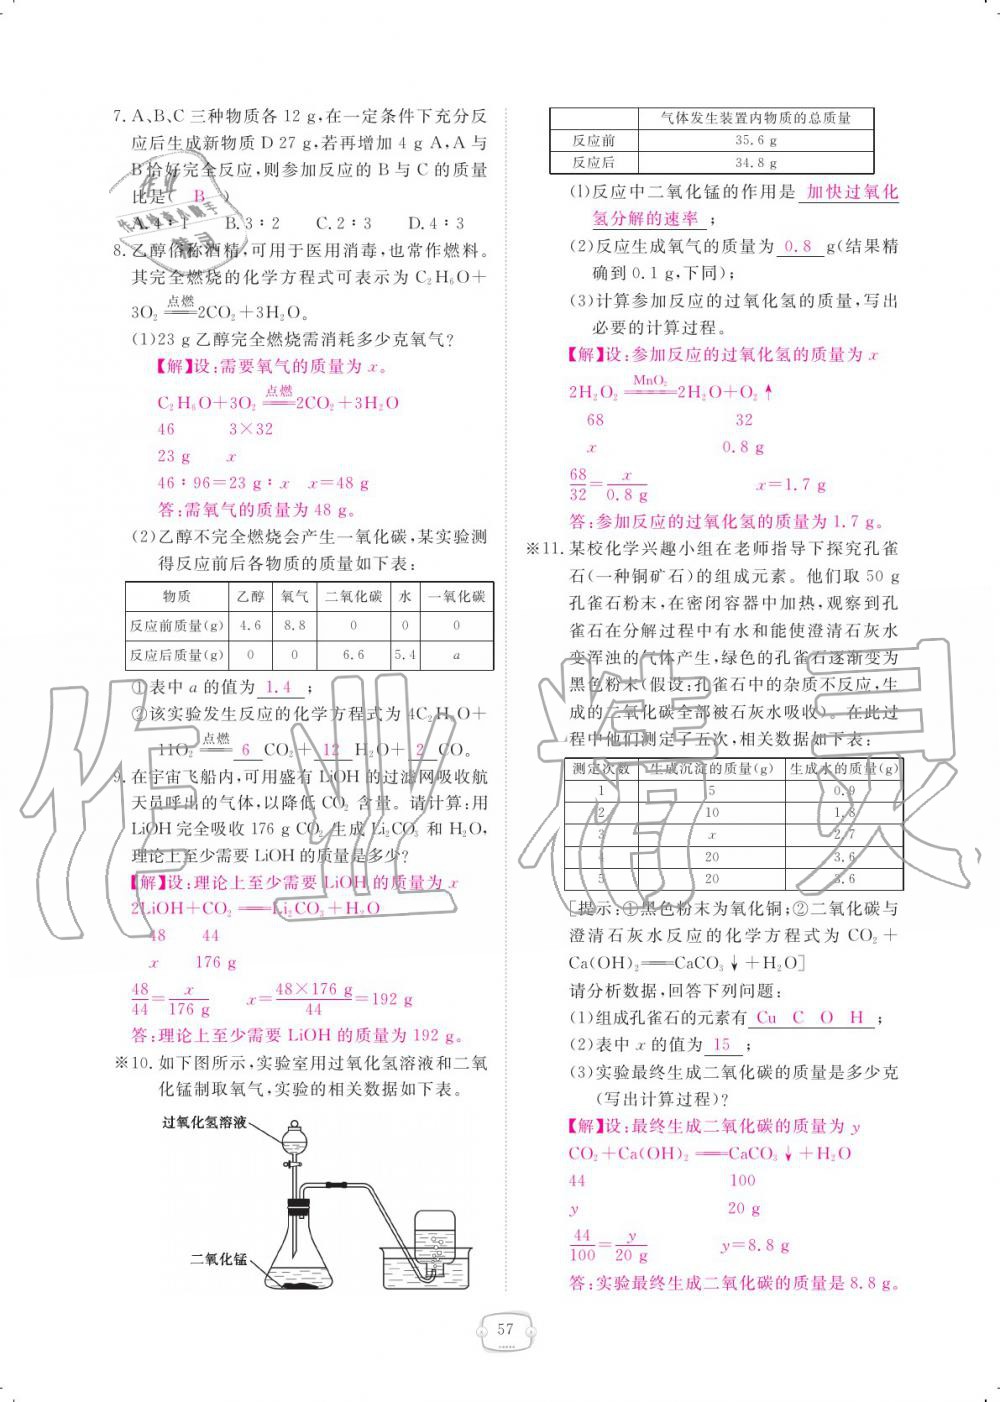 7. A、B、C 三种物质各 12 g,在一定条件下充分反
应后生成新物质 D 27 g,若再增加 4 g A,A 与
B 恰好完全反应,则参加反应的 B 与 C 的质量
比是( B )
A. 4∶1 B. 3∶2 C. 2∶3 D. 4∶3
8. 乙醇俗称酒精,可用于医用消毒,也常作燃料。
其完全燃烧的化学方程式可表示为 C₂H₆O+
3O₂ ══点燃══ 2CO₂+3H₂O。
(1)23 g 乙醇完全燃烧需消耗多少克氧气?
【解】设:需要氧气的质量为 x。
C₂H₆O+3O₂ ══点燃══ 2CO₂+3H₂O
46 3×32
23 g x
46∶96=23 g∶x x=48 g
答:需氧气的质量为 48 g。
(2)乙醇不完全燃烧会产生一氧化碳,某实验测
得反应前后各物质的质量如下表:
物质 乙醇 氧气 二氧化碳 水 一氧化碳
反应前质量(g) 4.6 8.8 0 0 0
反应后质量(g) 0 0 6.6 5.4 a
①表中 a 的值为 1.4 ;
②该实验发生反应的化学方程式为 4C₂H₆O+
11O₂ ══点燃══ 6 CO₂+ 12 H₂O+ 2 CO。
9. 在宇宙飞船内,可用盛有 LiOH 的过滤网吸收航
天员呼出的气体,以降低 CO₂ 含量。请计算:用
LiOH 完全吸收 176 g CO₂ 生成 Li₂CO₃ 和 H₂O,
理论上至少需要 LiOH 的质量是多少?
【解】设:理论上至少需要 LiOH 的质量为 x
2LiOH+CO₂══Li₂CO₃+H₂O
48 44
x 176 g
48/44=x/176 g x=48×176 g/44=192 g
答:理论上至少需要 LiOH 的质量为 192 g。
※10. 如下图所示,实验室用过氧化氢溶液和二氧
化锰制取氧气,实验的相关数据如下表。
过氧化氢溶液
二氧化锰
气体发生装置内物质的总质量
反应前 35.6 g
反应后 34.8 g
(1)反应中二氧化锰的作用是 加快过氧化
氢分解的速率 ;
(2)反应生成氧气的质量为 0.8 g(结果精
确到 0.1 g,下同);
(3)计算参加反应的过氧化氢的质量,写出
必要的计算过程。
【解】设:参加反应的过氧化氢的质量为 x
2H₂O₂ ══MnO₂══ 2H₂O+O₂↑
68 32
x 0.8 g
68/32=x/0.8 g x=1.7 g
答:参加反应的过氧化氢的质量为 1.7 g。
※11. 某校化学兴趣小组在老师指导下探究孔雀
石(一种铜矿石)的组成元素。他们取 50 g
孔雀石粉末,在密闭容器中加热,观察到孔
雀石在分解过程中有水和能使澄清石灰水
变浑浊的气体产生,绿色的孔雀石逐渐变为
黑色粉末(假设:孔雀石中的杂质不反应,生
成的二氧化碳全部被石灰水吸收)。在此过
程中他们测定了五次,相关数据如下表:
测定次数 生成沉淀的质量(g) 生成水的质量(g)
1 5 0.9
2 10 1.8
3 x 2.7
4 20 3.6
5 20 3.6
[提示:①黑色粉末为氧化铜;②二氧化碳与
澄清石灰水反应的化学方程式为 CO₂+
Ca(OH)₂══CaCO₃↓+H₂O]
请分析数据,回答下列问题:
(1)组成孔雀石的元素有 Cu C O H ;
(2)表中 x 的值为 15 ;
(3)实验最终生成二氧化碳的质量是多少克
(写出计算过程)?
【解】设:最终生成二氧化碳的质量为 y
CO₂+Ca(OH)₂══CaCO₃↓+H₂O
44 100
y 20 g
44/100=y/20 g y=8.8 g
答:实验最终生成二氧化碳的质量是 8.8 g。
57
作业精灵